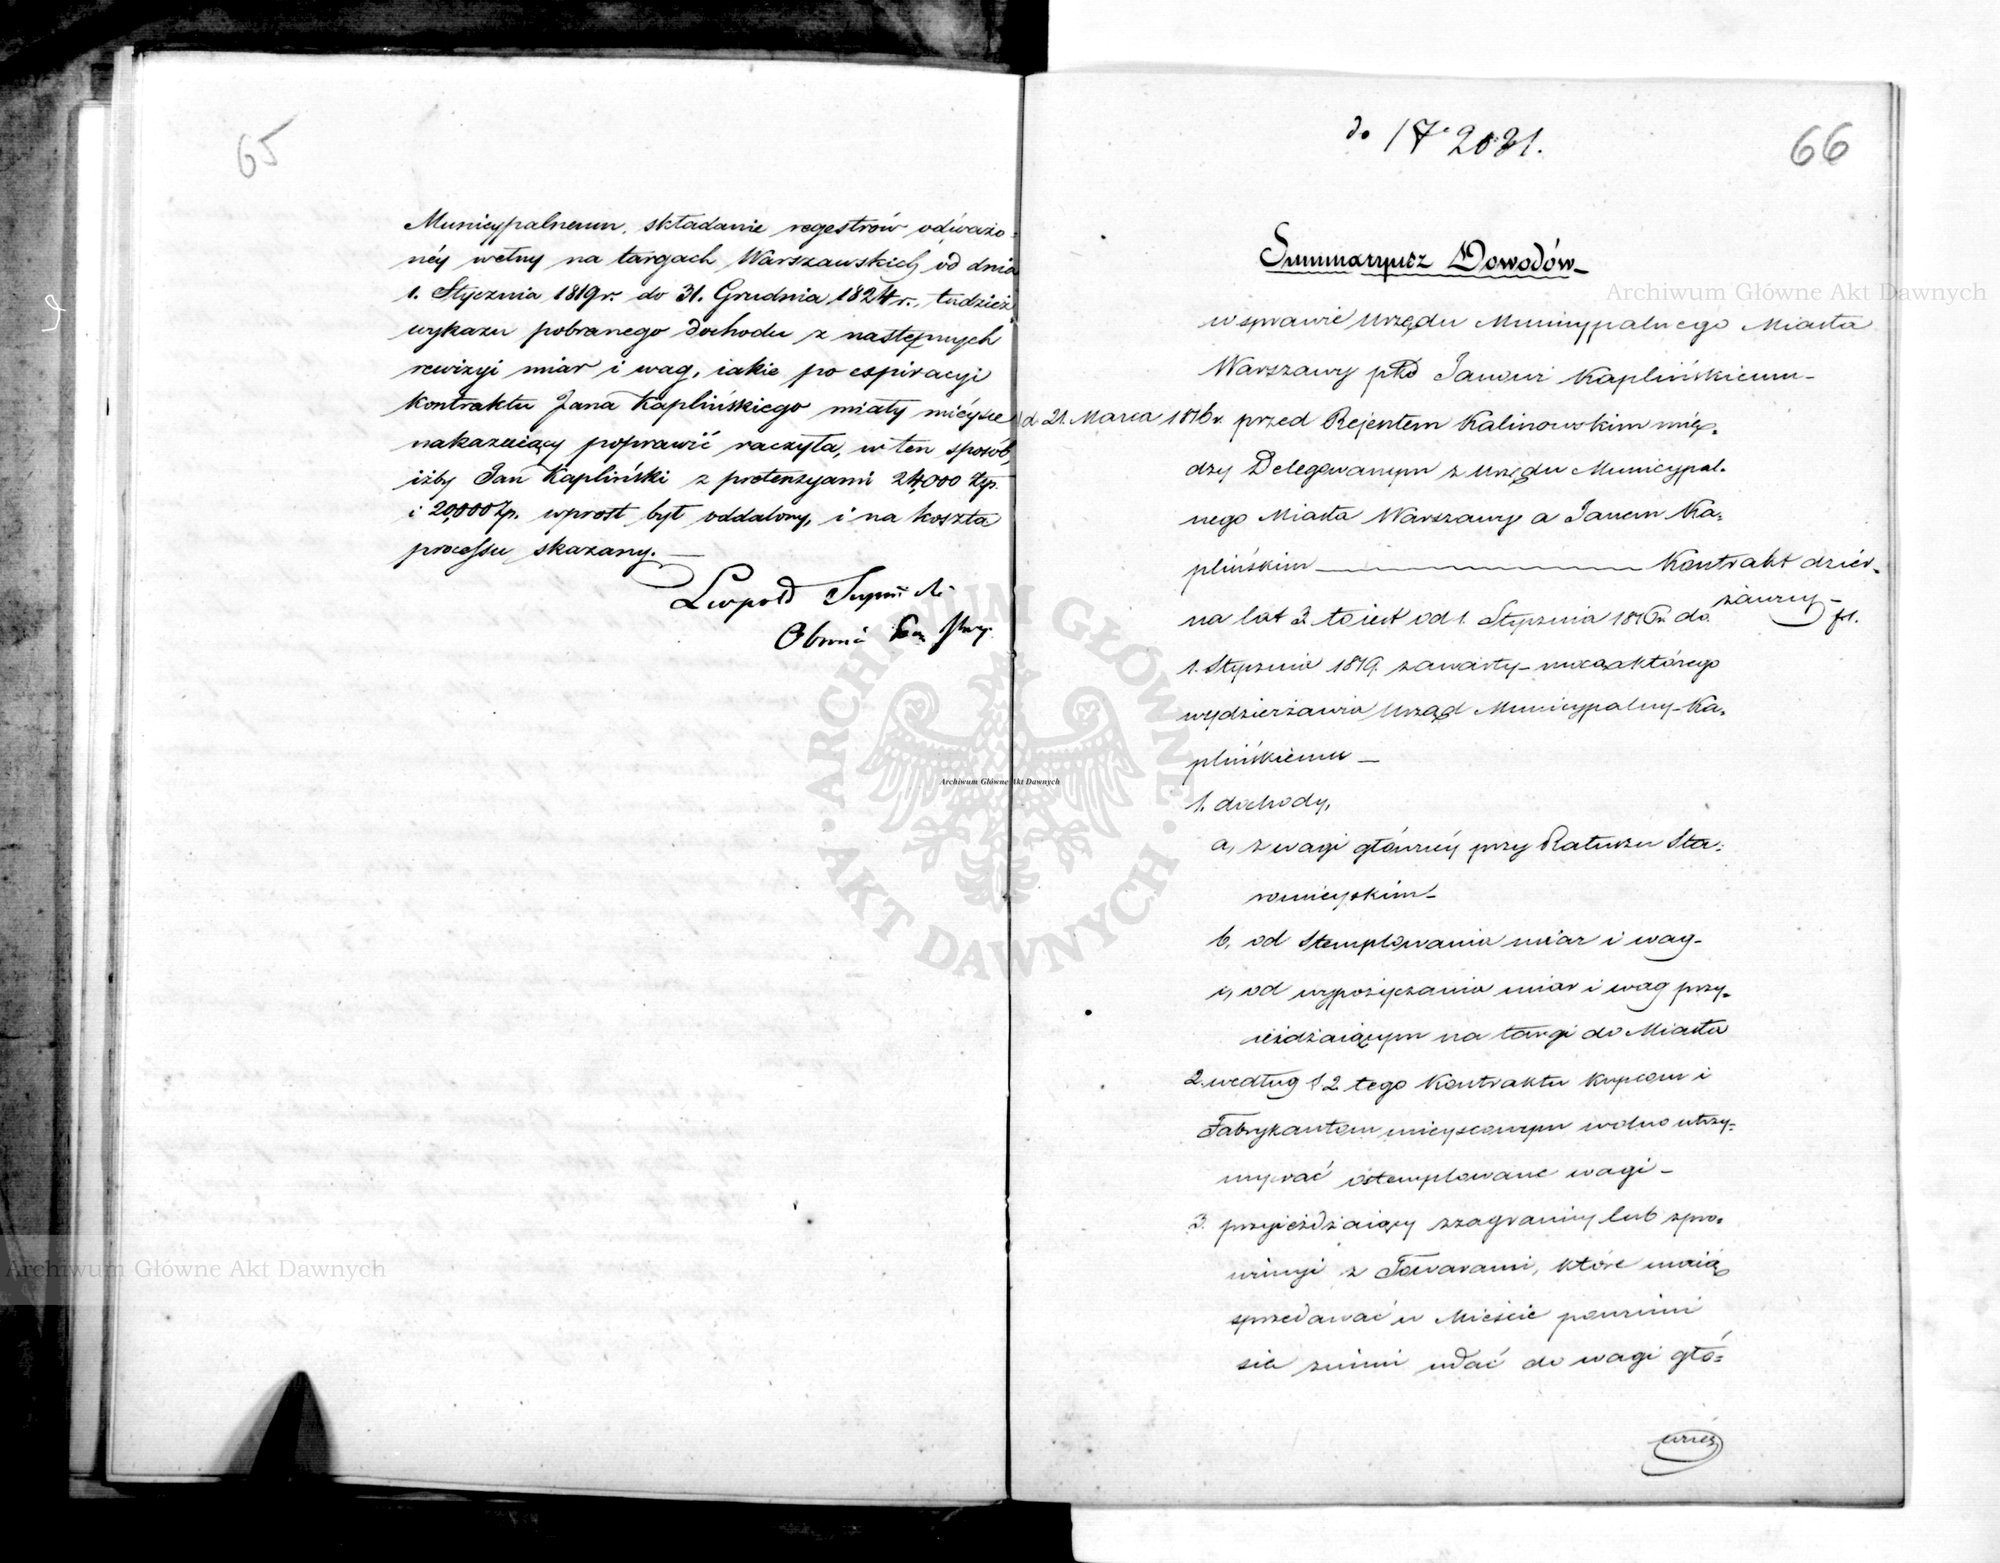 65
Municypalnemu, składanie regestrów odważo-
néy wełny na targach Warszawskich od dnia
1. Stycznia 1819r. do 31. Grudnia 1824r., tudzież
wykazu pobranego dochodu z następnych
rewizyi miar i wag, iakie po expiracyi
kontraktu Jana Kaplińskiego miały mieysce
nakazuiący poprawić raczyła, w ten sposób,
iżby Jan Kapliński z pretensyami 24,000 Złp.
i 20,000 Zp. wprost był oddalony, i na koszta
processu skazany.—
Leopold
Obrońca
66
do 2031.
Summaryusz Dowodów—
w sprawie Urzędu Municypalnego Miasta
Warszawy płko Janowi Kaplińskiemu—
d 21. Marca 1816r. przed Rejentem Kalinowskim mię=
dzy Delegowanym z Urzędu Municypal=
nego Miasta Warszawy a Janem Ka=
plińskim — Kontrakt dzier=
żawny—
na lat 3. to iest od 1. Stycznia 1816r. do
1. Stycznia 1819. zawarty— mocą którego
wydzierżawia Urząd Municypalny Ka=
plińskiemu —
1. dochody,
a, z wagi głównéy przy Ratuszu Sta=
romieyskim—
b, od stemplowania miar i wag—
c, od wypożyczania miar i wag przy=
ieżdżaiącym na targi do Miasta
2. według § 2 tego Kontraktu kupcom i
Fabrykantom mieyscowym wolno utrzy=
mywać ostemplowane wagi—
3. przyieżdżaiący z zagranicy lub z pro=
wincyi z Towarami, które maią
sprzedawać w Mieście powinni
sie z nimi udać do wagi głó=
wnéy
Archiwum Główne Akt Dawnych
Archiwum Główne Akt Dawnych
Archiwum Główne Akt Dawnych
ARCHIWUM GŁÓWNE · AKT DAWNYCH ·